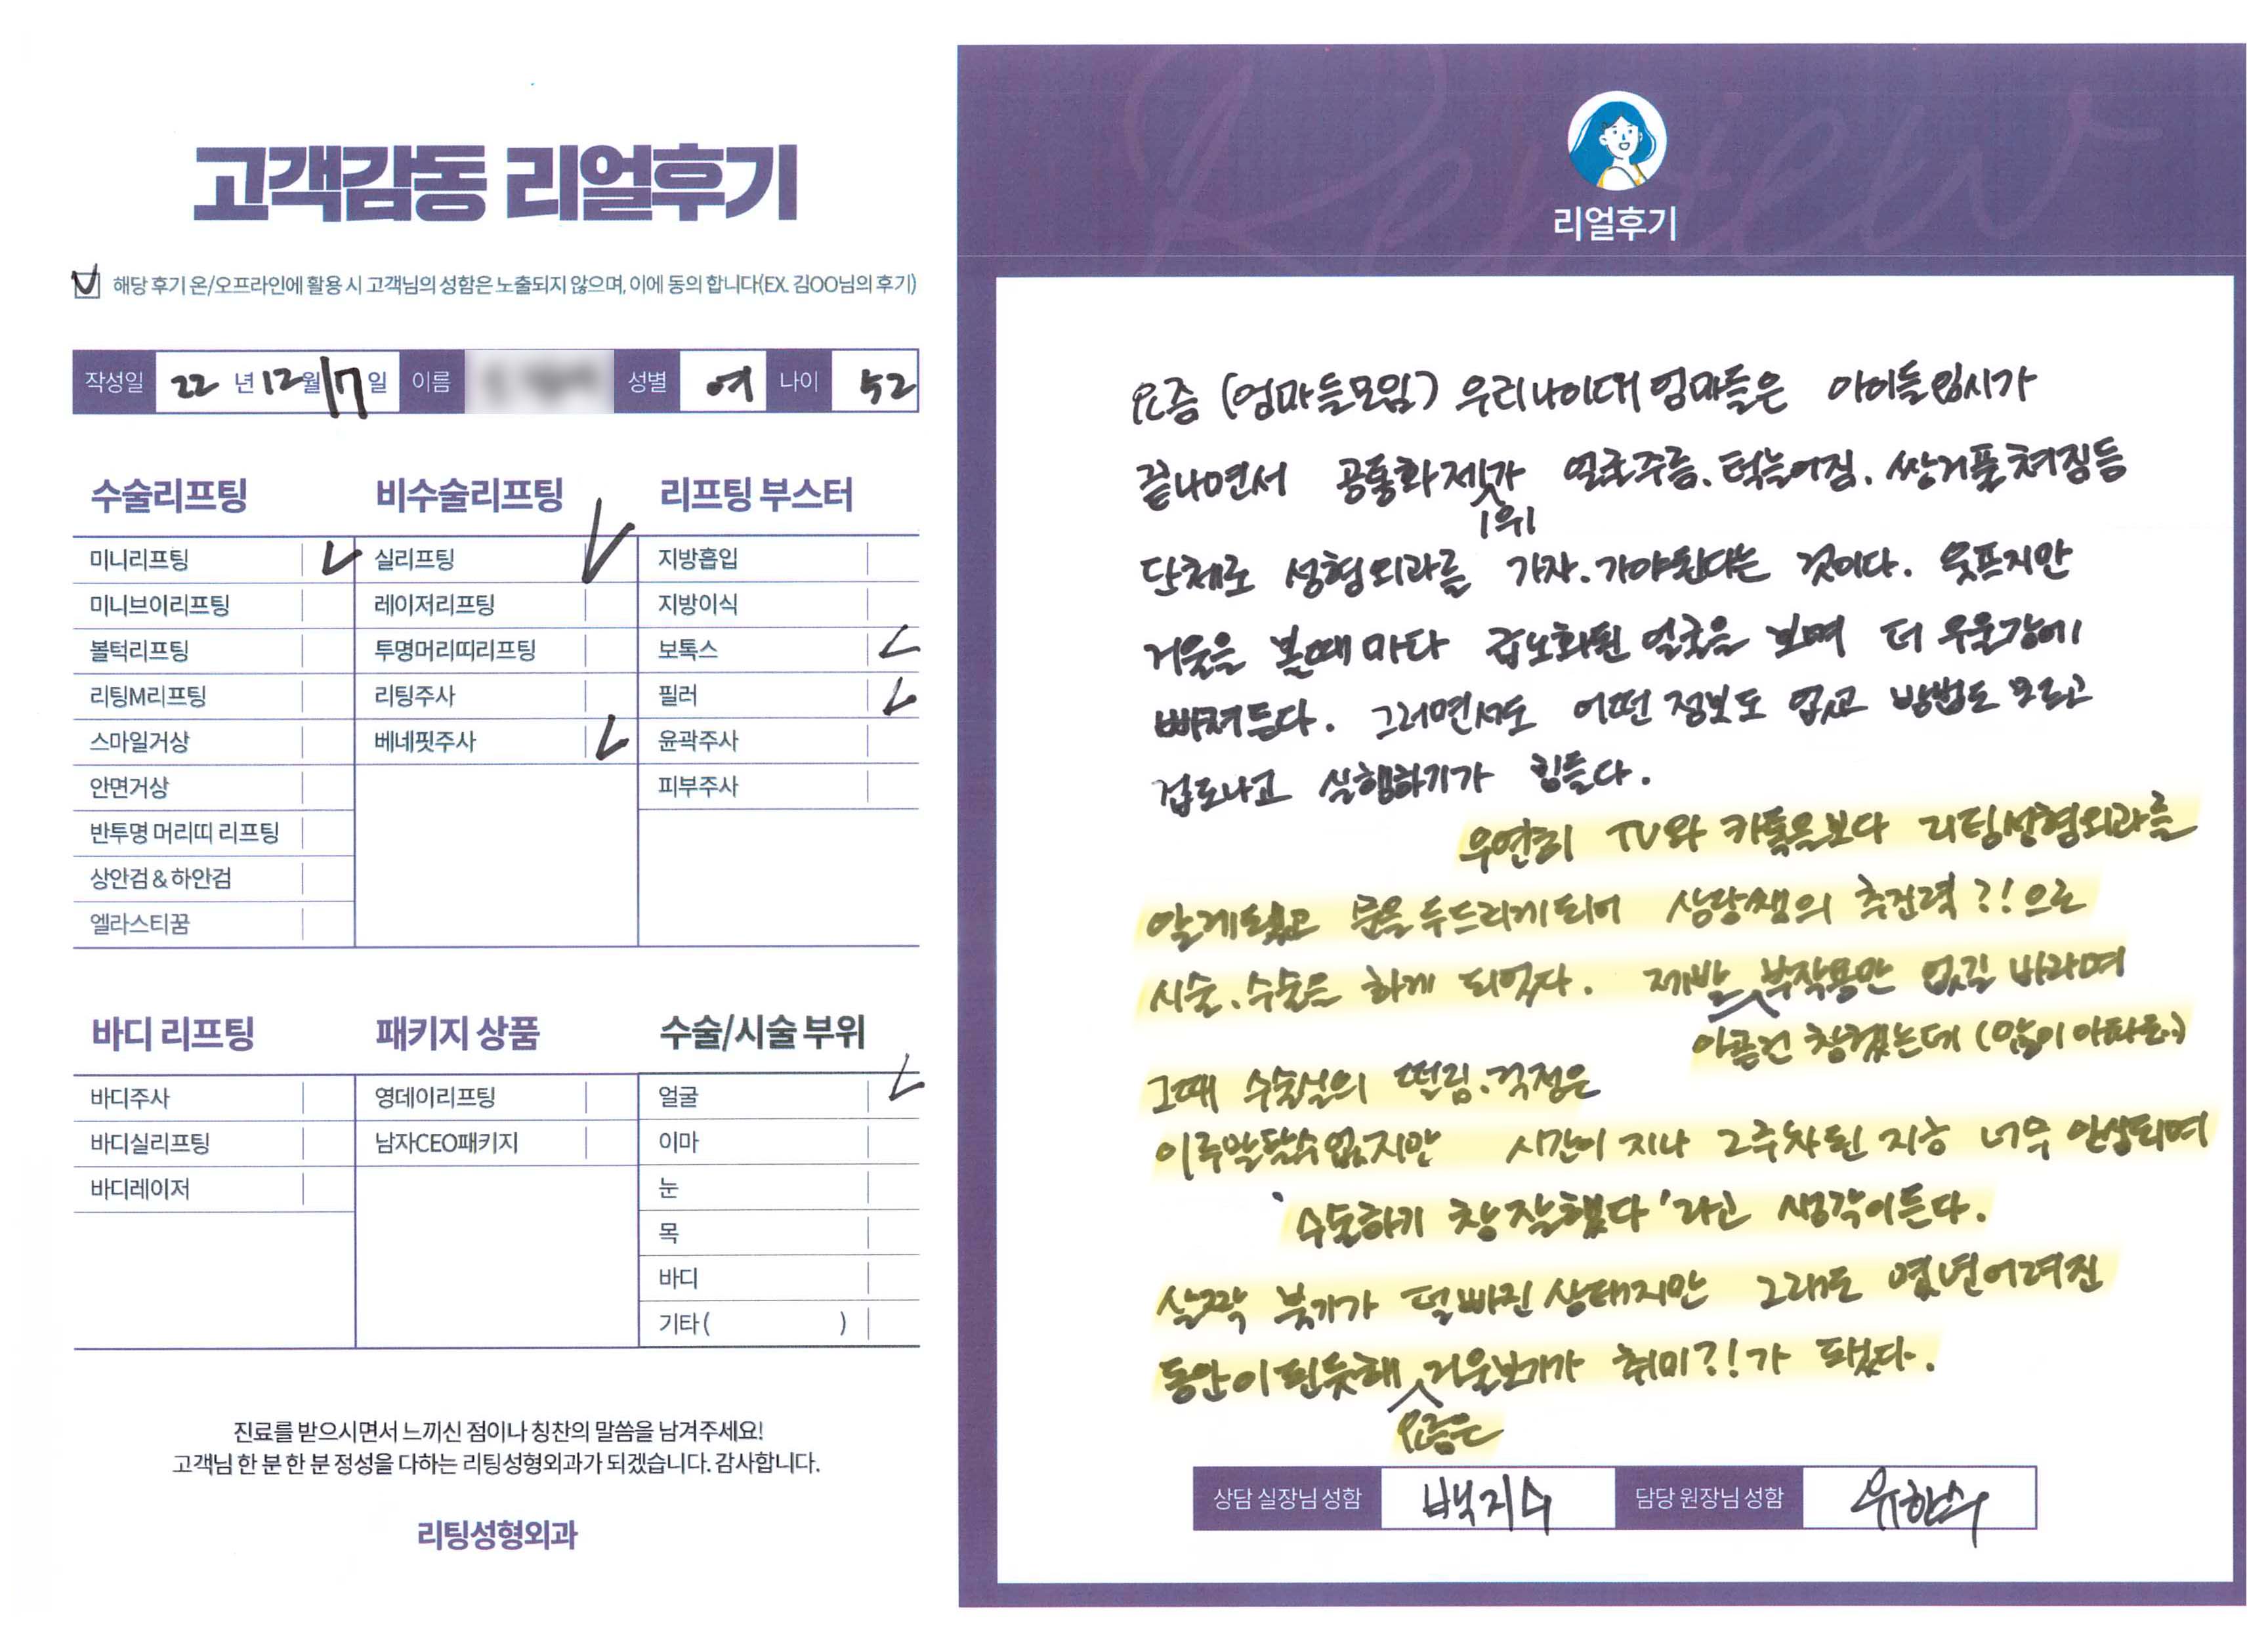 고객감동 리얼후기
해당 후기 온/오프라인에 활용 시 고객님의 성함은 노출되지 않으며, 이에 동의 합니다(EX. 김OO님의 후기)
작성일 22 년 12 월 17 일 이름 성별 여 나이 52
수술리프팅
미니리프팅
미니브이리프팅
볼턱리프팅
리팅M리프팅
스마일거상
안면거상
반투명 머리띠 리프팅
상안검 & 하안검
엘라스티꿈
비수술리프팅
실리프팅
레이저리프팅
투명머리띠리프팅
리팅주사
베네핏주사
리프팅 부스터
지방흡입
지방이식
보톡스
필러
윤곽주사
피부주사
바디 리프팅
바디주사
바디실리프팅
바디레이저
패키지 상품
영데이리프팅
남자CEO패키지
수술/시술 부위
얼굴
이마
눈
목
바디
기타 ( )
진료를 받으시면서 느끼신 점이나 칭찬의 말씀을 남겨주세요!
고객님 한 분 한 분 정성을 다하는 리팅성형외과가 되겠습니다. 감사합니다.
리팅성형외과
Review
리얼후기
요즘 (엄마들모임) 우리나이대 엄마들은 아이들입시가
끝나면서 공통화제가 얼굴주름. 턱늘어짐. 쌍거풀쳐짐등
1위
단체로 성형외과를 가자. 가야된다는 것이다. 웃프지만
거울을 볼때마다 급노화된 얼굴을 보며 더 우울감에
빠져든다. 그러면서도 어떤 정보도 없고 방법도 모르고
겁도나고 실행하기가 힘들다.
우연히 TV와 카톡을보다 리팅성형외과를
알게되었고 문을 두드리게되어 상담쌤의 추진력?!으로
시술.수술은 하게 되었다. 제발 부작용만 없길 바라며
아픈건 참겠는데 (많이 아파요.)
그때 수술실의 떨림.걱정은
이루말할수없지만 시간이 지나 2주차된 지금 너무 안심되며
'수술하기 참 잘했다'라고 생각이든다.
살짝 붓기가 덜빠진 상태지만 그래도 몇년어려진
동안이된듯해 거울보기가 취미?!가 되었다.
요즘은
상담 실장님 성함 백지수 담당 원장님 성함 유한수